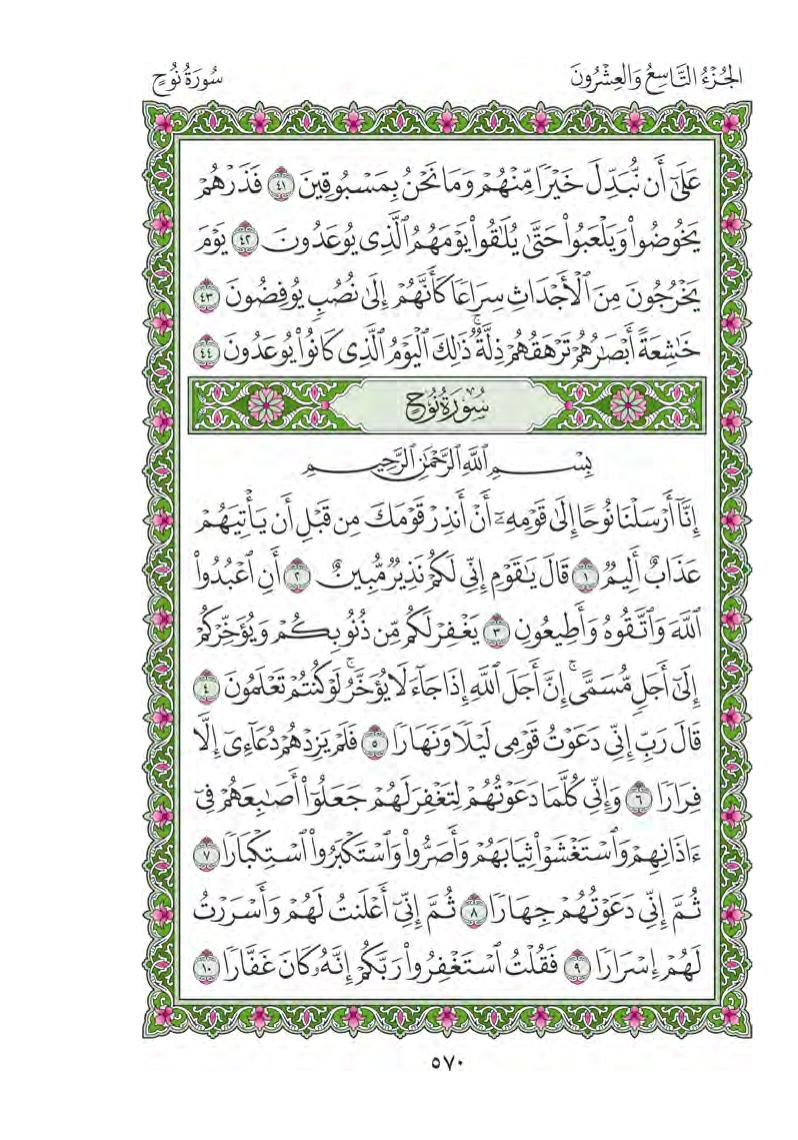 الجُزْءُ التَّاسِعُ وَالعِشْرُونَ
سُورَةُ نُوحٍ
عَلَىٰٓ أَن نُّبَدِّلَ خَيْرًا مِّنْهُمْ وَمَا نَحْنُ بِمَسْبُوقِينَ ٤١ فَذَرْهُمْ
يَخُوضُوا۟ وَيَلْعَبُوا۟ حَتَّىٰ يُلَٰقُوا۟ يَوْمَهُمُ ٱلَّذِى يُوعَدُونَ ٤٢ يَوْمَ
يَخْرُجُونَ مِنَ ٱلْأَجْدَاثِ سِرَاعًا كَأَنَّهُمْ إِلَىٰ نُصُبٍ يُوفِضُونَ ٤٣
خَٰشِعَةً أَبْصَٰرُهُمْ تَرْهَقُهُمْ ذِلَّةٌ ۚ ذَٰلِكَ ٱلْيَوْمُ ٱلَّذِى كَانُوا۟ يُوعَدُونَ ٤٤
سُورَةُ نُوحٍ
بِسْمِ ٱللَّهِ ٱلرَّحْمَٰنِ ٱلرَّحِيمِ
إِنَّآ أَرْسَلْنَا نُوحًا إِلَىٰ قَوْمِهِۦٓ أَنْ أَنذِرْ قَوْمَكَ مِن قَبْلِ أَن يَأْتِيَهُمْ
عَذَابٌ أَلِيمٌ ١ قَالَ يَٰقَوْمِ إِنِّى لَكُمْ نَذِيرٌ مُّبِينٌ ٢ أَنِ ٱعْبُدُوا۟
ٱللَّهَ وَٱتَّقُوهُ وَأَطِيعُونِ ٣ يَغْفِرْ لَكُم مِّن ذُنُوبِكُمْ وَيُؤَخِّرْكُمْ
إِلَىٰٓ أَجَلٍ مُّسَمًّى ۚ إِنَّ أَجَلَ ٱللَّهِ إِذَا جَآءَ لَا يُؤَخَّرُ ۖ لَوْ كُنتُمْ تَعْلَمُونَ ٤
قَالَ رَبِّ إِنِّى دَعَوْتُ قَوْمِى لَيْلًا وَنَهَارًا ٥ فَلَمْ يَزِدْهُمْ دُعَآءِىٓ إِلَّا
فِرَارًا ٦ وَإِنِّى كُلَّمَا دَعَوْتُهُمْ لِتَغْفِرَ لَهُمْ جَعَلُوٓا۟ أَصَٰبِعَهُمْ فِىٓ
ءَاذَانِهِمْ وَٱسْتَغْشَوْا۟ ثِيَابَهُمْ وَأَصَرُّوا۟ وَٱسْتَكْبَرُوا۟ ٱسْتِكْبَارًا ٧
ثُمَّ إِنِّى دَعَوْتُهُمْ جِهَارًا ٨ ثُمَّ إِنِّىٓ أَعْلَنتُ لَهُمْ وَأَسْرَرْتُ
لَهُمْ إِسْرَارًا ٩ فَقُلْتُ ٱسْتَغْفِرُوا۟ رَبَّكُمْ إِنَّهُۥ كَانَ غَفَّارًا ١٠
٥٧٠